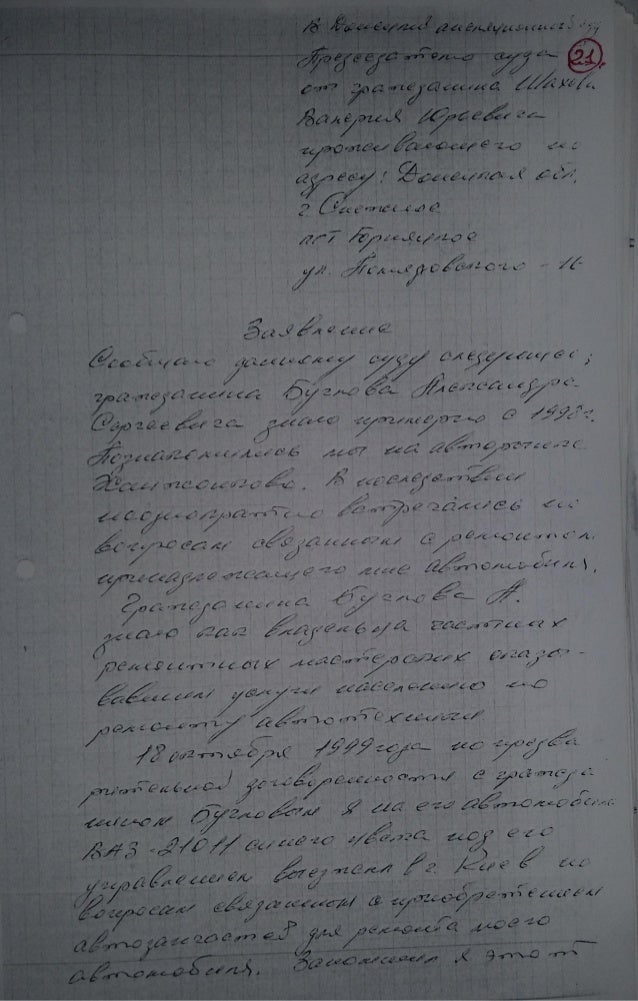 В Донецкий апелляционный суд
21
Председателю суда
от гражданина
Валерия Юрьевича
проживающего по
адресу: Донецкая обл.
г Снежное
пгт Горняцкое
ул. Помяловского - 16
Заявление
Сообщаю данному суду следующее;
гражданина Бучкова Александра
Сергеевича знаю примерно с 1998г.
Познакомились мы на авторынке
Ханжонково. В последствии
неоднократно встречались по
вопросам связанным с ремонтом
принадлежащего мне автомобиля.
Гражданина Бучкова А.
знаю как владельца частных
ремонтных мастерских оказы-
вавшим услуги населению по
ремонту автотехники
18 октября 1999 года по предва
рительной договоренности с гражда
нином Бучковым я на его автомобиле
ВАЗ-21011 синего цвета под его
управлением выезжал в г. Киев по
вопросам связанным с приобретением
автозапчастей для ремонта моего
автомобиля. Запомнил я этот